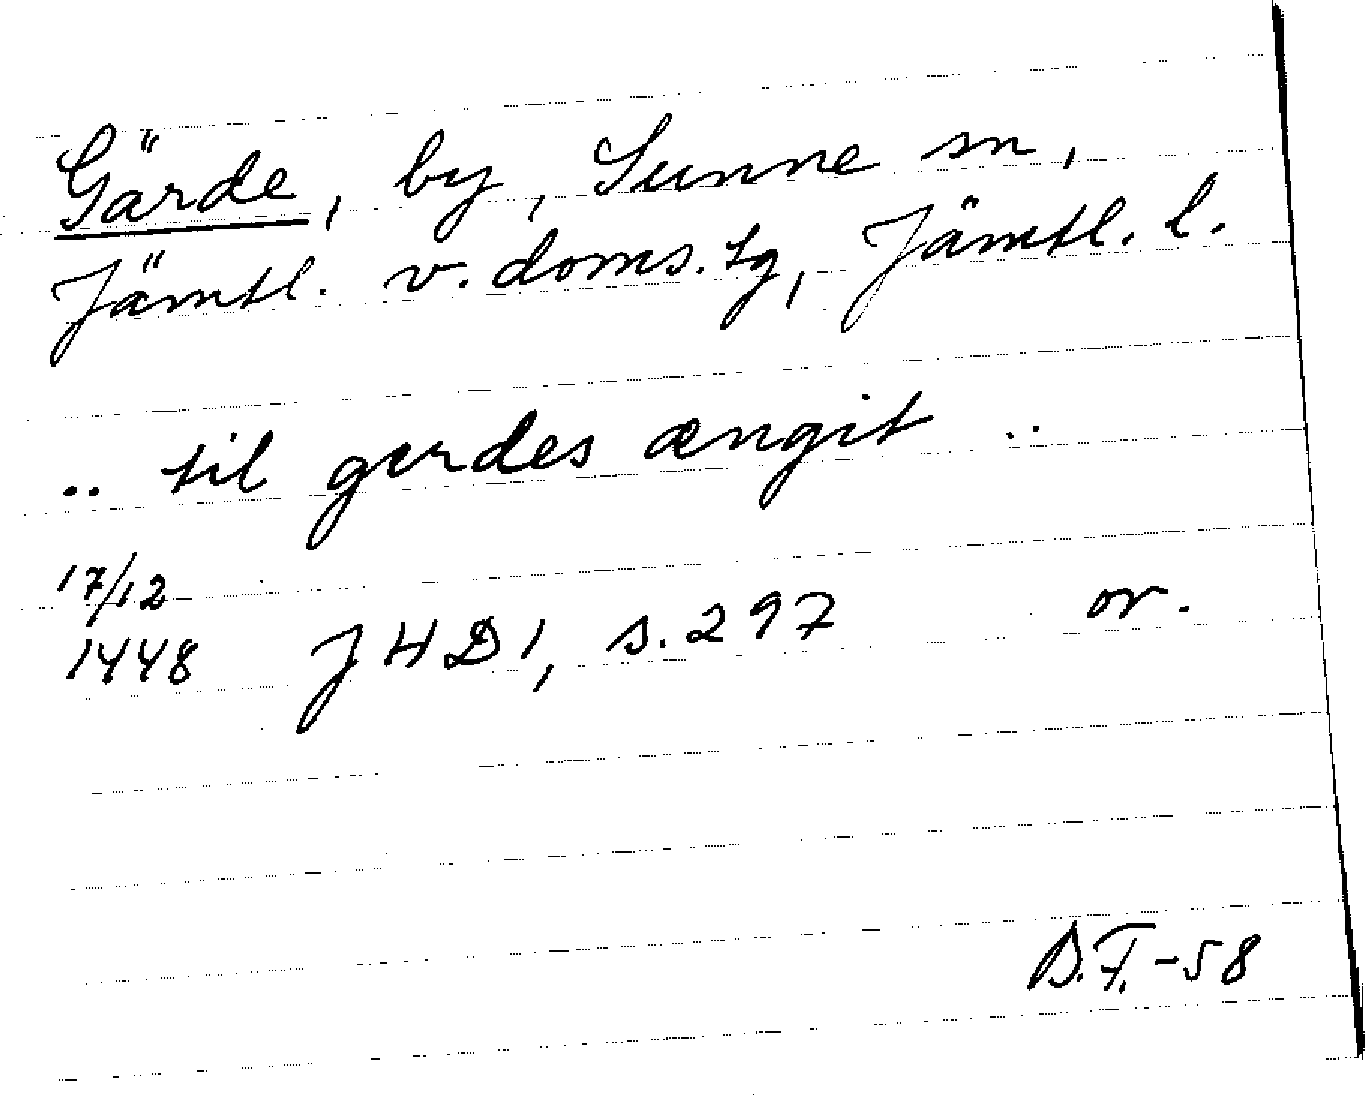 Gärde, by, Sunne sn,
Jämtl. v. doms. tg, Jämtl. l.
.. til gerdes ængit ..
17/12
1448 JHD1, s. 297 or.
D.F.-58